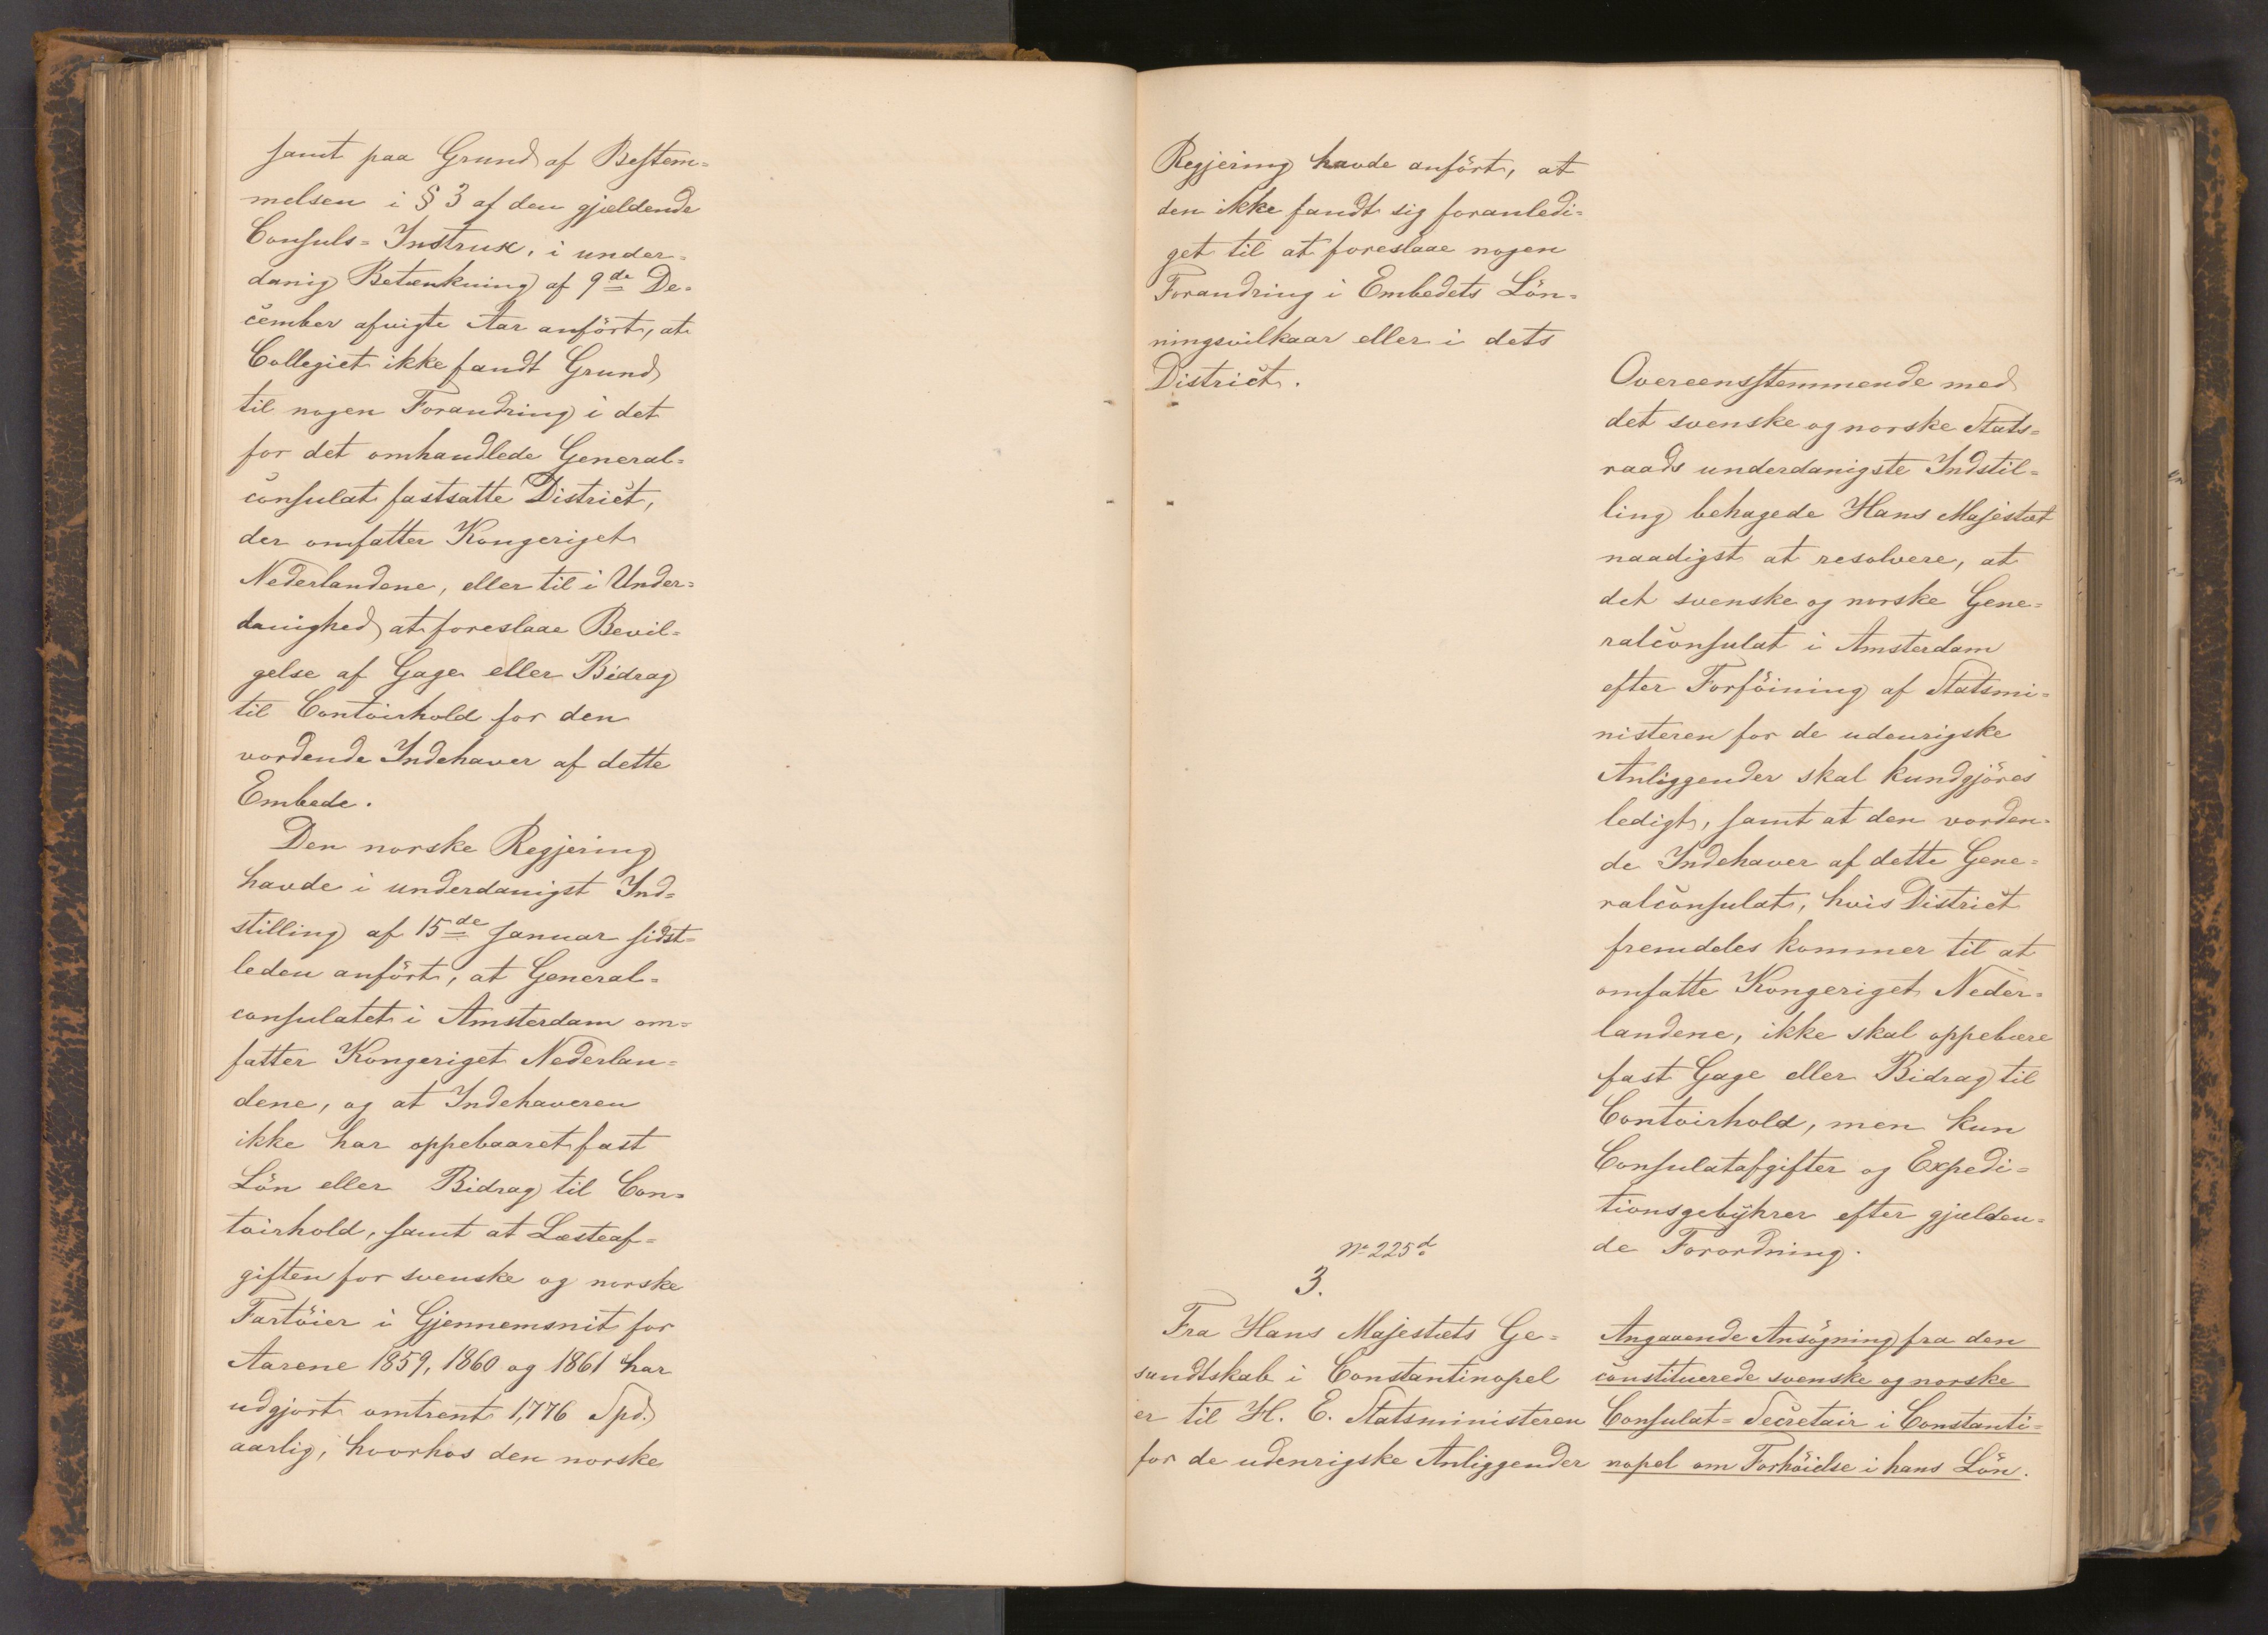 samt paa Grund af Bestem=
melsen i § 3 af den gjældende
Consuls=Instrux, i under=
danig Betænkning af 9de De=
cember afvigte Aar anfört, at
Collegiet ikke fandt Grund
til nogen Forandring i det
for det omhandlede General=
consulat fastsatte District,
der omfatter Kongeriget
Nederlandene, eller til i Under=
danighed at foreslaae Bevil=
gelse af Gage eller Bidrag
til Contoirhold for den
vordende Indehaver af dette
Embede.
Den norske Regjering
havde i underdanigst Ind=
stilling af 15de Januar sidst=
leden anfört, at General=
consulatet i Amsterdam om=
fatter Kongeriget Nederlan=
dene, og at Indehaveren
ikke har oppebaaret fast
Lön eller Bidrag til Con=
toirhold, samt at Læsteaf=
giften for svenske og norske
Fartöier i Gjennemsnit for
Aarene 1859, 1860 og 1861 har
udgjort omtrent 1,776 Spd.
aarlig, hvorhos den norske
Regjering havde anfört, at
den ikke fandt sig foranledi=
get til at foreslaae nogen
Forandring i Embedets Lön=
ningsvilkaar eller i dets
District.
Overeensstemmende med
det svenske og norske Stats=
raads underdanigste Indstil=
ling behagede Hans Majestæt
naadigst at resolvere, at
det svenske og norske Gene=
ralconsulat i Amsterdam
efter Forföining af Statsmi=
nisteren for de udenrigske
Anliggender skal kundgjöres
ledigt, samt at den vorden=
de Indehaver af dette Gene=
ralconsulat, hvis District
fremdeles kommer til at
omfatte Kongeriget Neder=
landene, ikke skal oppebære
fast Gage eller Bidrag til
Contoirhold, men kun
Consulatafgifter og Expedi=
tionsgebyhrer efter gjælden=
de Forordning.
No 225d
3.
Fra Hans Majestæts Ge=
sandtskab i Constantinopel
er til H. E. Statsministeren
for de udenrigske Anliggender
Angaaende Ansögning fra den
constituerede svenske og norske
Consulat=Secretair i Constanti=
nopel om Forhöidse i hans Lön.